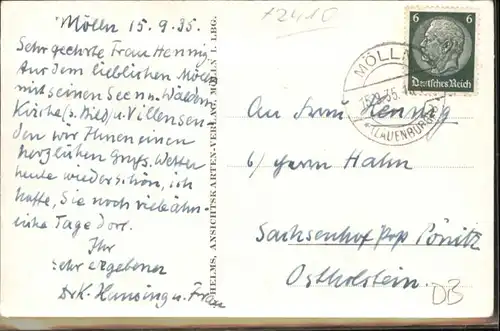 Mölln 15.9.35.
Sehr geehrte Frau Hennig
Aus dem lieblichen Mölln
mit seinen Seen u. Wäldern
Kirche (s. Bild) u. Villen sen-
den wir Ihnen einen
herzlichen Gruß. Wetter
heute wieder schön, ich
hoffe, Sie noch viele ähn-
liche Tage dort.
Ihr
sehr ergebener
Hansing u. Frau
HELMS, ANSICHTSKARTEN-VERLAG, MÖLLN I. LBG.
+2410
6 6
Deutsches Reich
MÖLLN
15.9.35.
(LAUENBURG)
An Frau Hennig
b/ Herrn Hahn
Sachsenhof Pönitz
Ostholstein.
DB